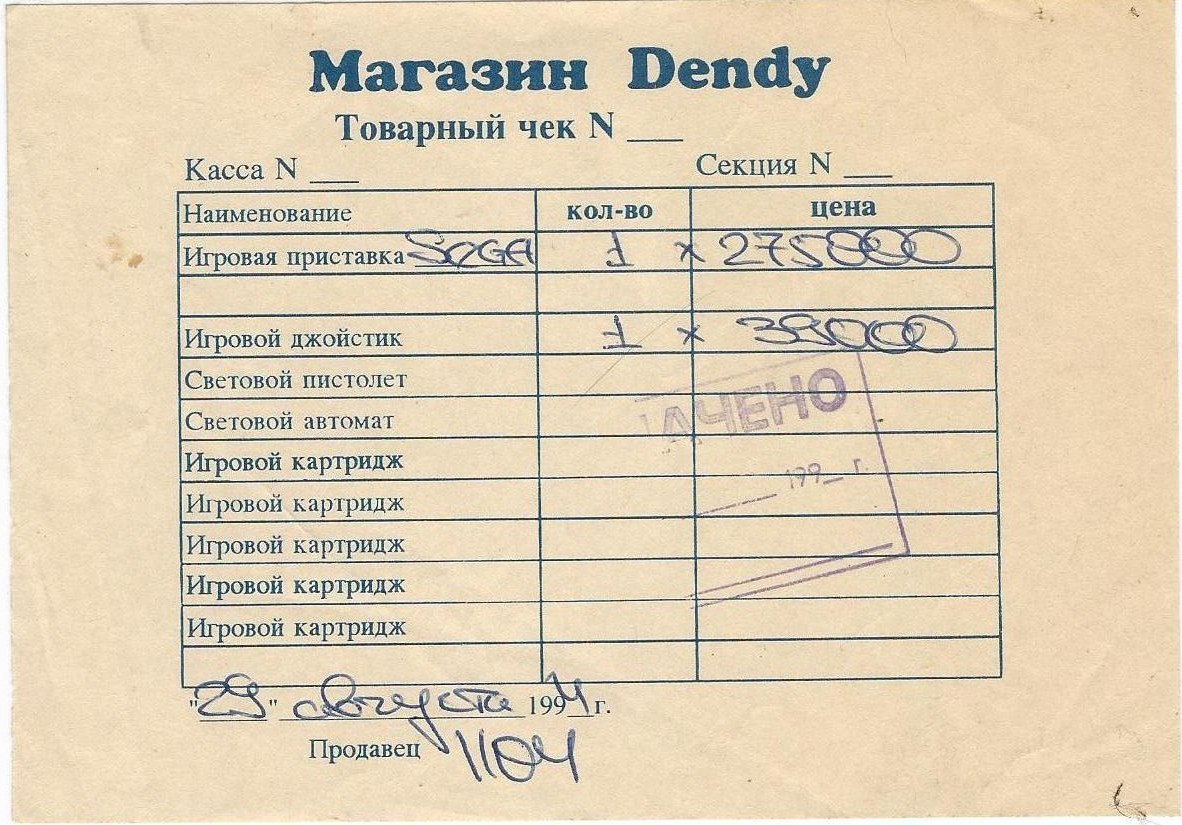 Магазин Dendy
Товарный чек N ___
Касса N ___ Секция N ___
Наименование кол-во цена
Игровая приставка SEGA 1 x 275000
Игровой джойстик 1 x 39000
Световой пистолет
Световой автомат
АЧЕНО
Игровой картридж
199_ г.
Игровой картридж
Игровой картридж
Игровой картридж
Игровой картридж
"29" августа 1994 г.
Продавец 1104